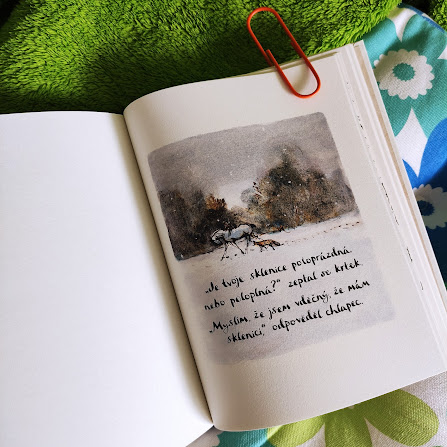 „Je tvoje sklenice poloprázdná
nebo poloplná?“ zeptal se krtek.
„Myslím, že jsem vděčný, že mám
sklenici,“ odpověděl chlapec.